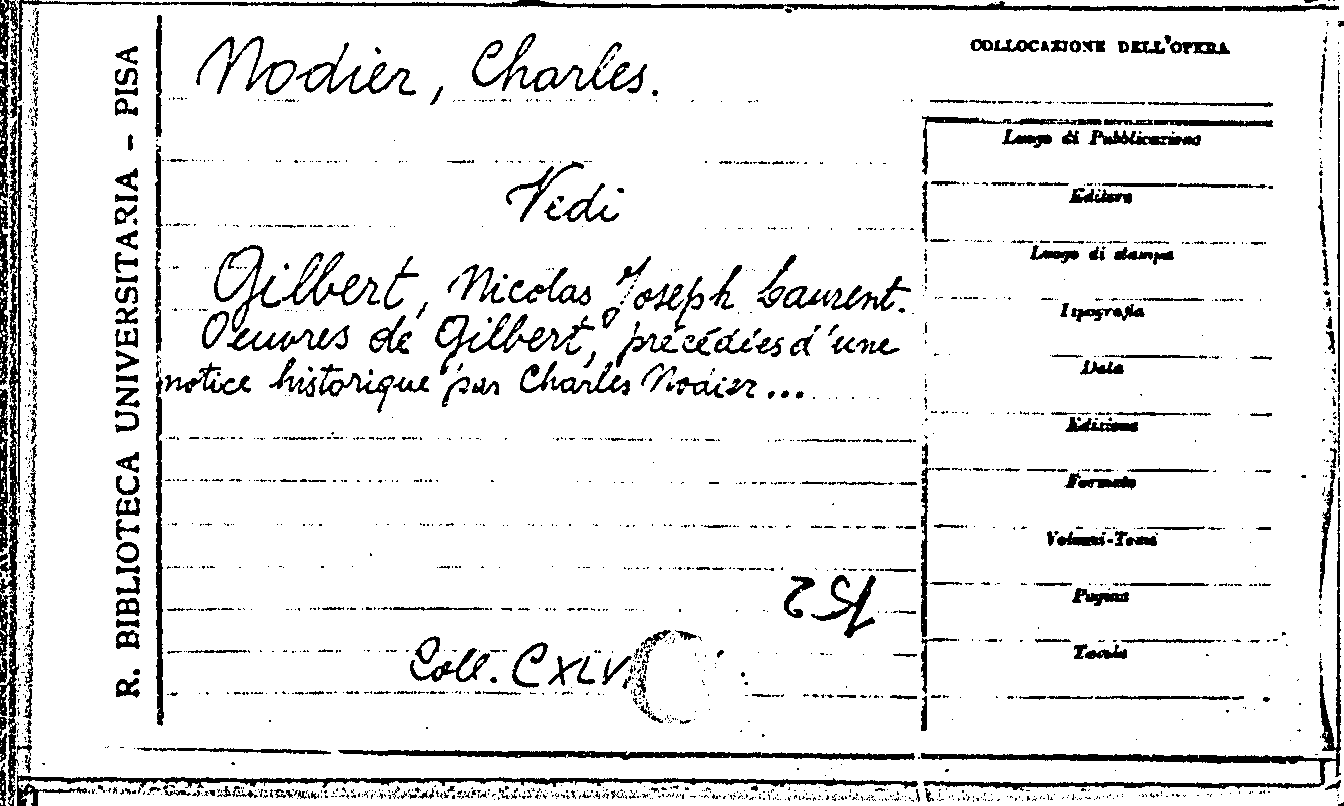 R. BIBLIOTECA UNIVERSITARIA - PISA
Nodier, Charles.
Vedi
Gilbert, Nicolas Joseph Laurent.
Oeuvres de Gilbert, précédées d'une
notice historique par Charles Nodier...
Coll. CXLV
COLLOCAZIONE DELL'OPERA
Luogo di Pubblicazione
Editore
Luogo di stampa
Tipografia
Data
Edizione
Formato
Volumi-Tomi
Pagine
Tavole